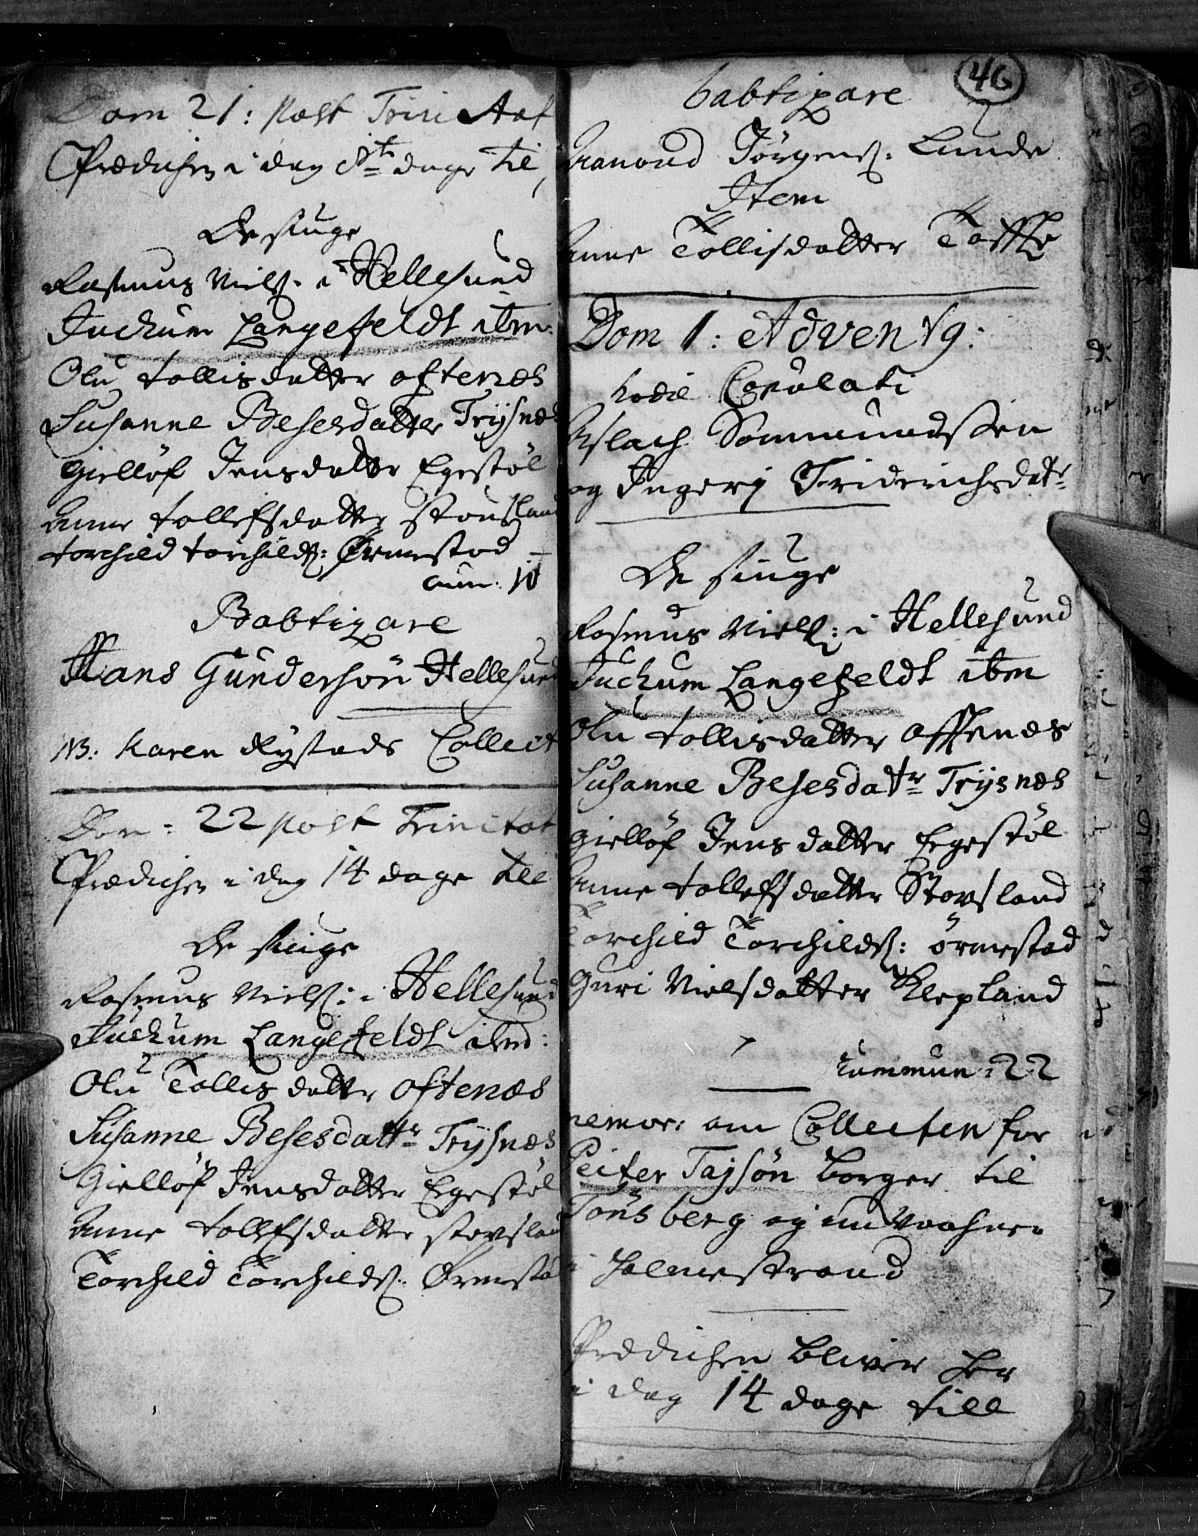 Dom 21: post Trinit
Prædichen i dag 8te dage til
De siuge
Rasmus Niels: i Hellesund
Juchum Langefeldt ibm:
Olu tollisdatter oftenæs
Susanne Besesdatter Trysnæs
Gielløf Jensdatter Egestøl
Anne tollefsdatter Stousland
torchild torchilds: Ørmestad
Babtizare
Hans Gundersøn Hellesund
NB: Karen Rystads Collect
Dom: 22 post Trinitat
Prædichen i dag 14 dage till
De siuge
Rasmus Niels: i Hellesund
Juchum Langefeldt ibid:
Olu Tollisdatter oftenæs
Susanne Besesdattr Trysnæs
Gielløf Jensdatter Egestøl
Anne tollefsdatter stovsland
Torchild Torchilds: Ørmestad
46
babtizare
Jørgens: Lunde
Item
Anne Tollisdatter
Dom 1: Advent9:
hodie Copulati
Aslach Sommundssen
og Ingerj Friderichsdatr
De siuge
Rasmus Niels: i Hellesund
Juchum Langefeldt ibm
Olu tollisdatter Afftenæs
Susanne Besesdatr Trysnæs
Gielløf Jensdatter Egestøl
Anne tollefsdatter Stovsland
Torchild Torchilds: ørmestad
Guri Nielsdatter Klepland
Commun: 22
memor: om Collecten for
Peiter Tajsøn borger til
Tønsberg og
i Holmestrand
Prædichen bliver her
i dag 14 dage till